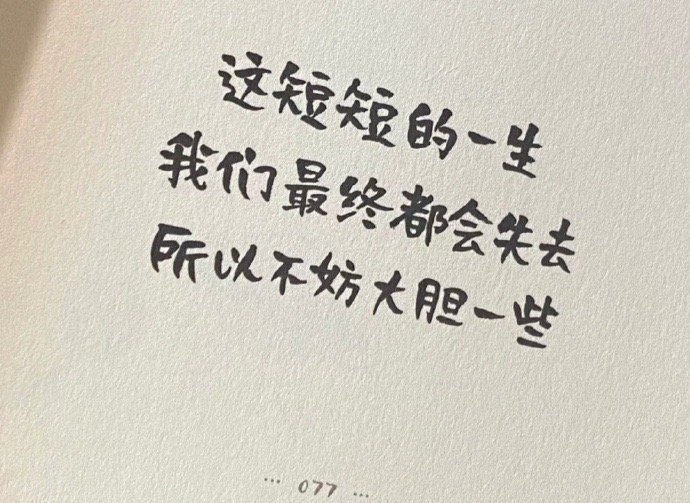 这短短的一生
我们最终都会失去
所以不妨大胆一些
… 077 …